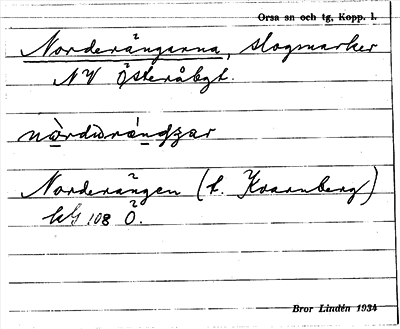 Orsa sn och tg, Kopp. l.
Norderängarna, slogmarker
NV Österåbgt.
nòrdərángzar
Norderängen (t. Kvarnberg)
108 Ö.
Bror Lindén 1934